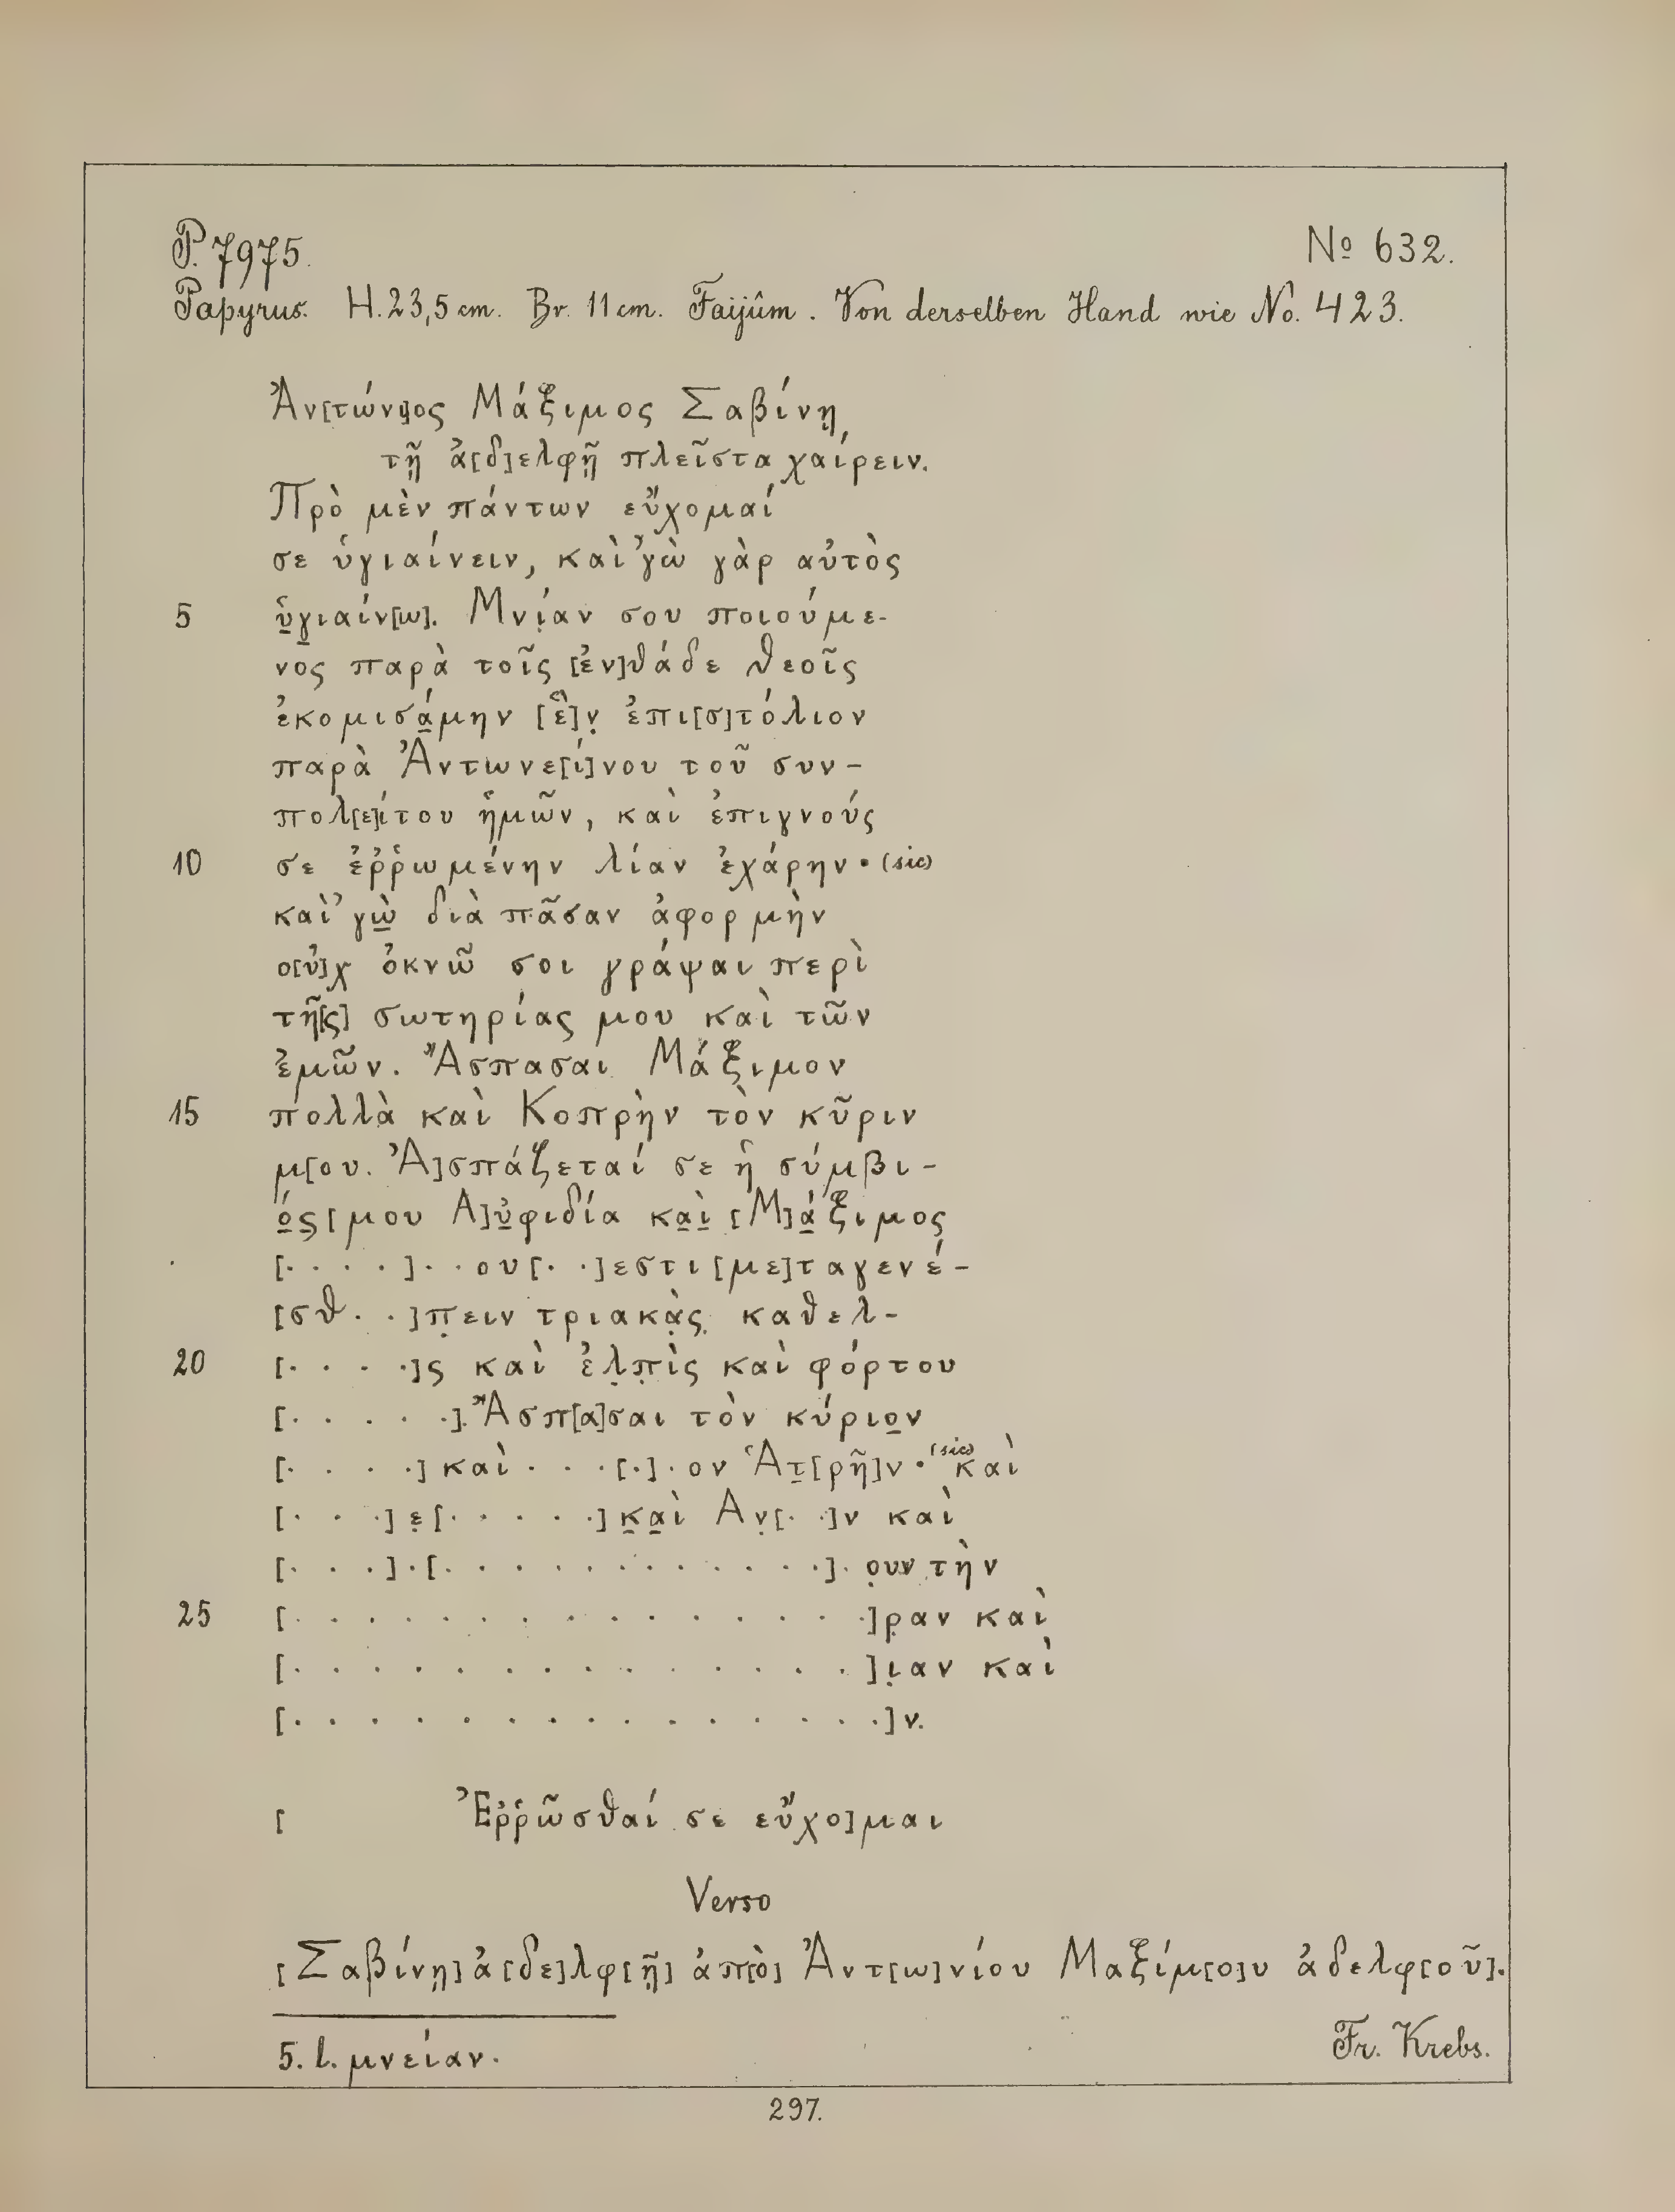 P. 7975.
No 632.
Papyrus. H. 23,5 cm. Br. 11 cm. Faijûm. Von derselben Hand wie No. 423.
Ἀν[τώνι]ος Μάξιμος Σαβίνῃ
τῇ ἀ[δ]ελφῇ πλεῖστα χαίρειν.
Πρὸ μὲν πάντων εὔχομαί
σε ὑγιαίνειν, καὶ ᾿γὼ γὰρ αὐτὸς
5 ὑ̣γ̣ιαίν[ω]. Μνί̣αν σου ποιούμε-
νος παρὰ τοῖς [ἐν]θάδε θεοῖς
ἐκομισά̣μην [ἓ]ν̣ ἐπι[σ]τόλιον
παρὰ Ἀντωνε[ί]νου τοῦ συν-
πολ[ε]ίτου ἡμῶν, καὶ ἐπιγνούς
10 σε ἐῤῥωμένην λίαν ἐχάρην · (sic)
καὶ ᾿γὼ̣ διὰ πᾶσαν ἀφορμὴν
ο[ὐ]χ ὀκνῶ σοι γράψαι περὶ
τῆ[ς] σωτηρίας μου καὶ τῶν
ἐμῶν. Ἄσπασαι Μάξιμον
15 πολλὰ καὶ Κοπρὴν τὸν κῦριν
μ[ου. Ἀ]σπάζεταί σε ἡ σύμβι-
ό̣ς̣ [μου Α]ὐ̣φιδία κα̣ὶ̣ [Μ]ά̣ξιμος
[· · · ·] · · ου[· ·]εστι [με]ταγενέ-
[σθ · ·]π̣ειν τριακὰ̣ς̣ καθελ-
20 [· · · ·]ς καὶ ἐλ̣π̣ὶς καὶ φόρτου
[· · · · ·]. Ἄσπ[α]σαι τὸν κύριο̣ν
[· · · ·] καὶ · · · [·] · ον Ἁτ̣[ρῆ]ν · (sic) καὶ
[· · ·] ε̣[· · · · ·] κ̣α̣ὶ Αν̣[· ·]ν καὶ
[· · ·] · [· · · · · · · · · · ·] · ο̣υν τὴν
25 [· · · · · · · · · · · · · ·]ρ̣αν καὶ
[· · · · · · · · · · · · ·]ι̣αν καὶ
[· · · · · · · · · · · · · ·]ν.
[ Ἐῤῥῶσθαί σε εὔχο]μαι
Verso
[Σαβίνῃ] ἀ[δε]λφ[ῇ] ἀπ[ὸ] Ἀντ[ω]νίου Μαξίμ[ο]υ ἀδελφ[οῦ].
5. l. μνείαν.
Fr. Krebs.
297.